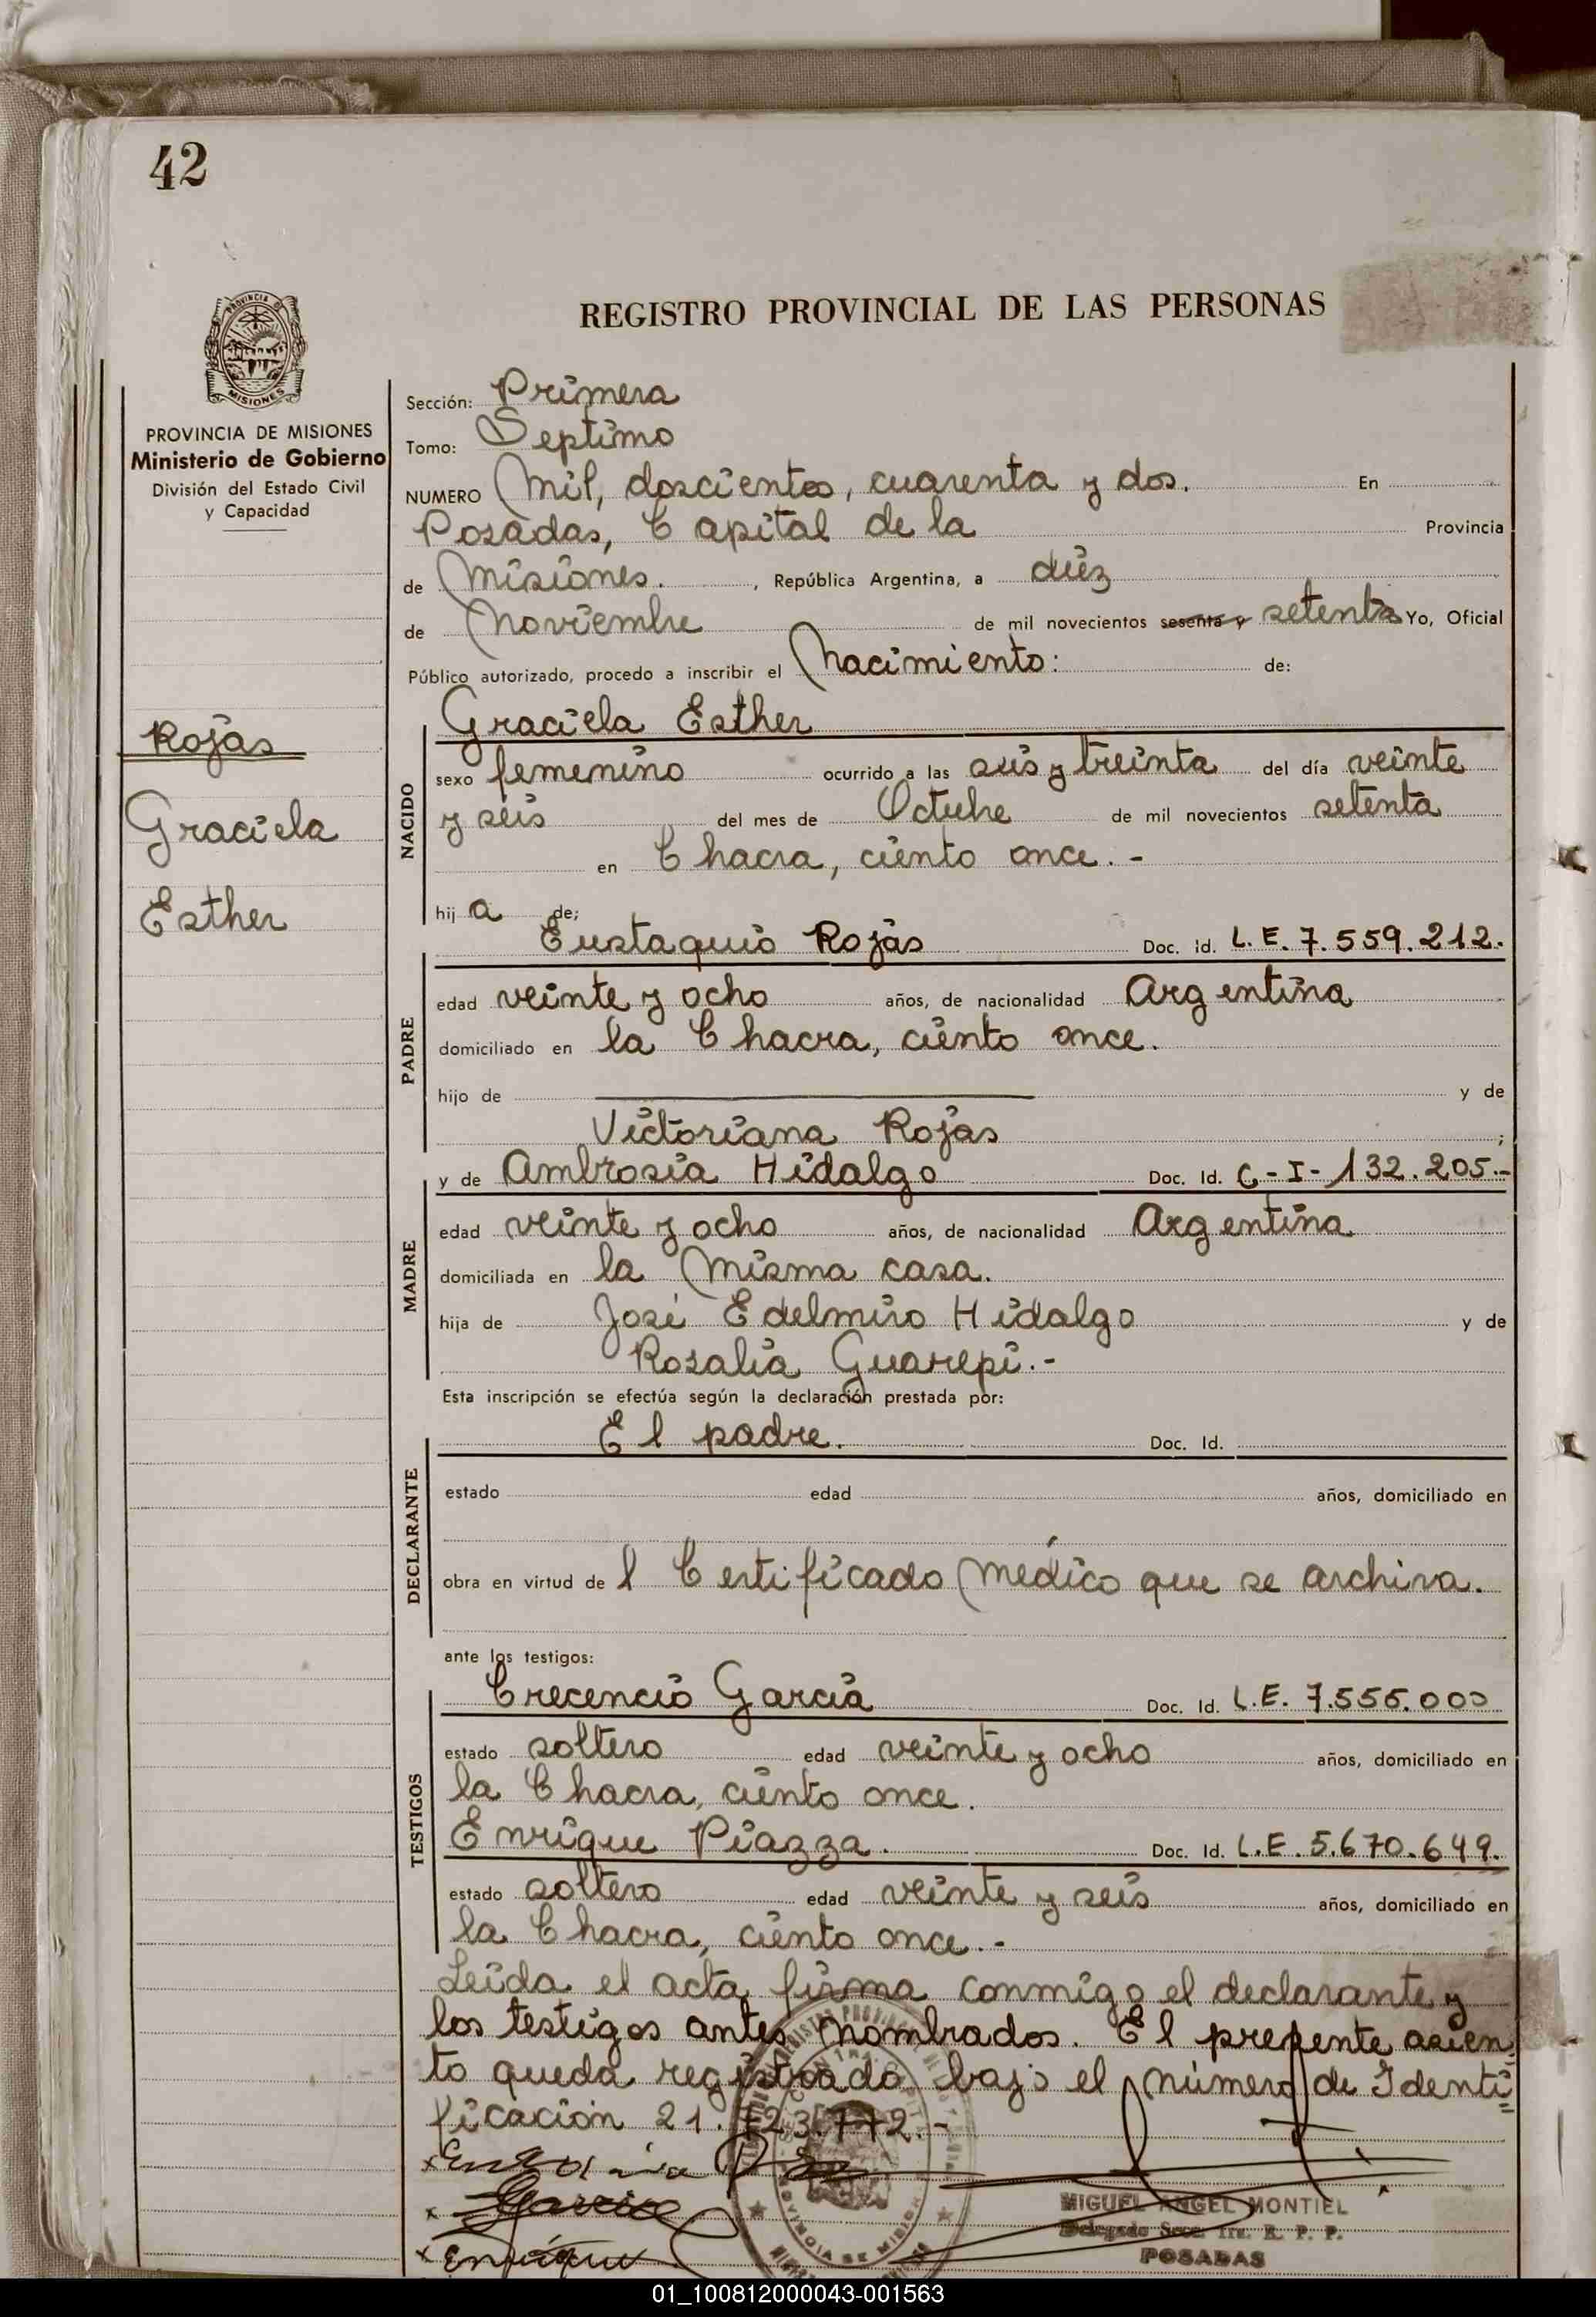 42
REGISTRO PROVINCIAL DE LAS PERSONAS
PROVINCIA DE MISIONES
Ministerio de Gobierno
División del Estado Civil
y Capacidad
Rojas
Graciela
Esther
Sección: Primera
Tomo: Septimo
NUMERO Mil, doscientos, cuarenta y dos. En
Posadas, Capital de la Provincia
de Misiones. , República Argentina, a diéz
de Noviembre de mil novecientos sesenta y setenta Yo, Oficial
Público autorizado, procedo a inscribir el Nacimiento: de:
Graciela Esther
NACIDO
sexo femenino ocurrido a las seis y treinta del día veinte
y seis del mes de Octubre de mil novecientos setenta
en Chacra, ciento once. -
hij a de;
Eustaquio Rojas Doc. Id. L.E. 7.559.212.
PADRE
edad veinte y ocho años, de nacionalidad Argentina
domiciliado en la Chacra, ciento once.
hijo de y de
Victoriana Rojas ;
y de Ambrosia Hidalgo Doc. Id. C-I-132.205.-
MADRE
edad veinte y ocho años, de nacionalidad Argentina
domiciliada en la Misma casa.
hija de José Edelmiro Hidalgo y de
Rosalia Guarepi.-
Esta inscripción se efectúa según la declaración prestada por:
El padre. Doc. Id.
DECLARANTE
estado edad años, domiciliado en
obra en virtud de l Certificado Médico que se archiva.
ante los testigos:
Crecencio Garcia Doc. Id. L.E. 7.555.000
TESTIGOS
estado soltero edad veinte y ocho años, domiciliado en
la Chacra, ciento once.
Enrique Piazza. Doc. Id. L.E. 5.670.649.
estado soltero edad veinte y seis años, domiciliado en
la Chacra, ciento once.-
Leida el acta firma conmigo el declarante y
los testigos antes nombrados. El presente asien
to queda registrado bajo el número de Identi
ficación 21.
MIGUEL ANGEL MONTIEL
Delegado Secc. 1ra. R. P. P.
POSADAS
01_100812000043-001563